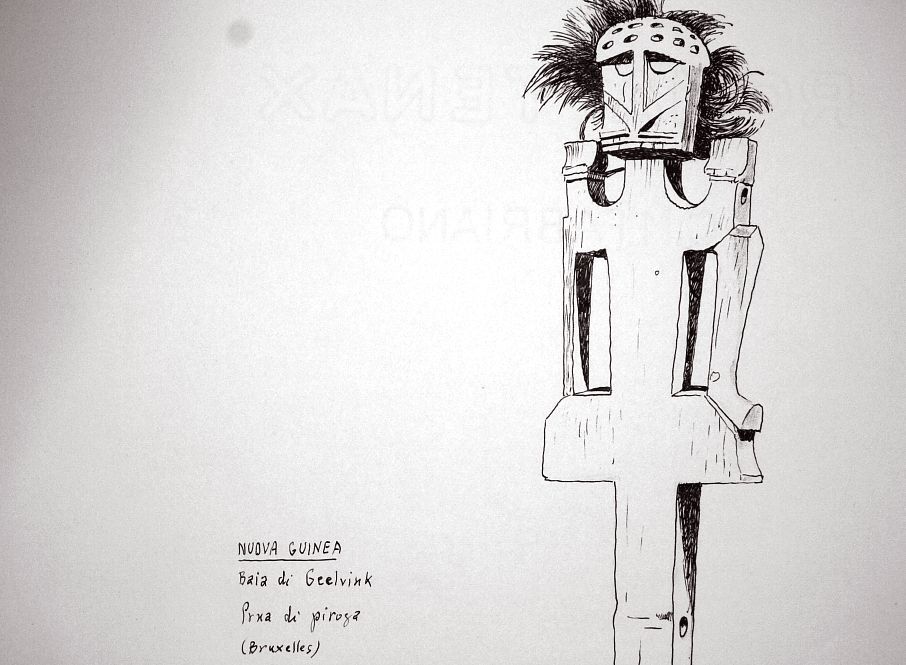 NUOVA GUINEA
Baia di Geelvink
Prxa di piroga
(Bruxelles)